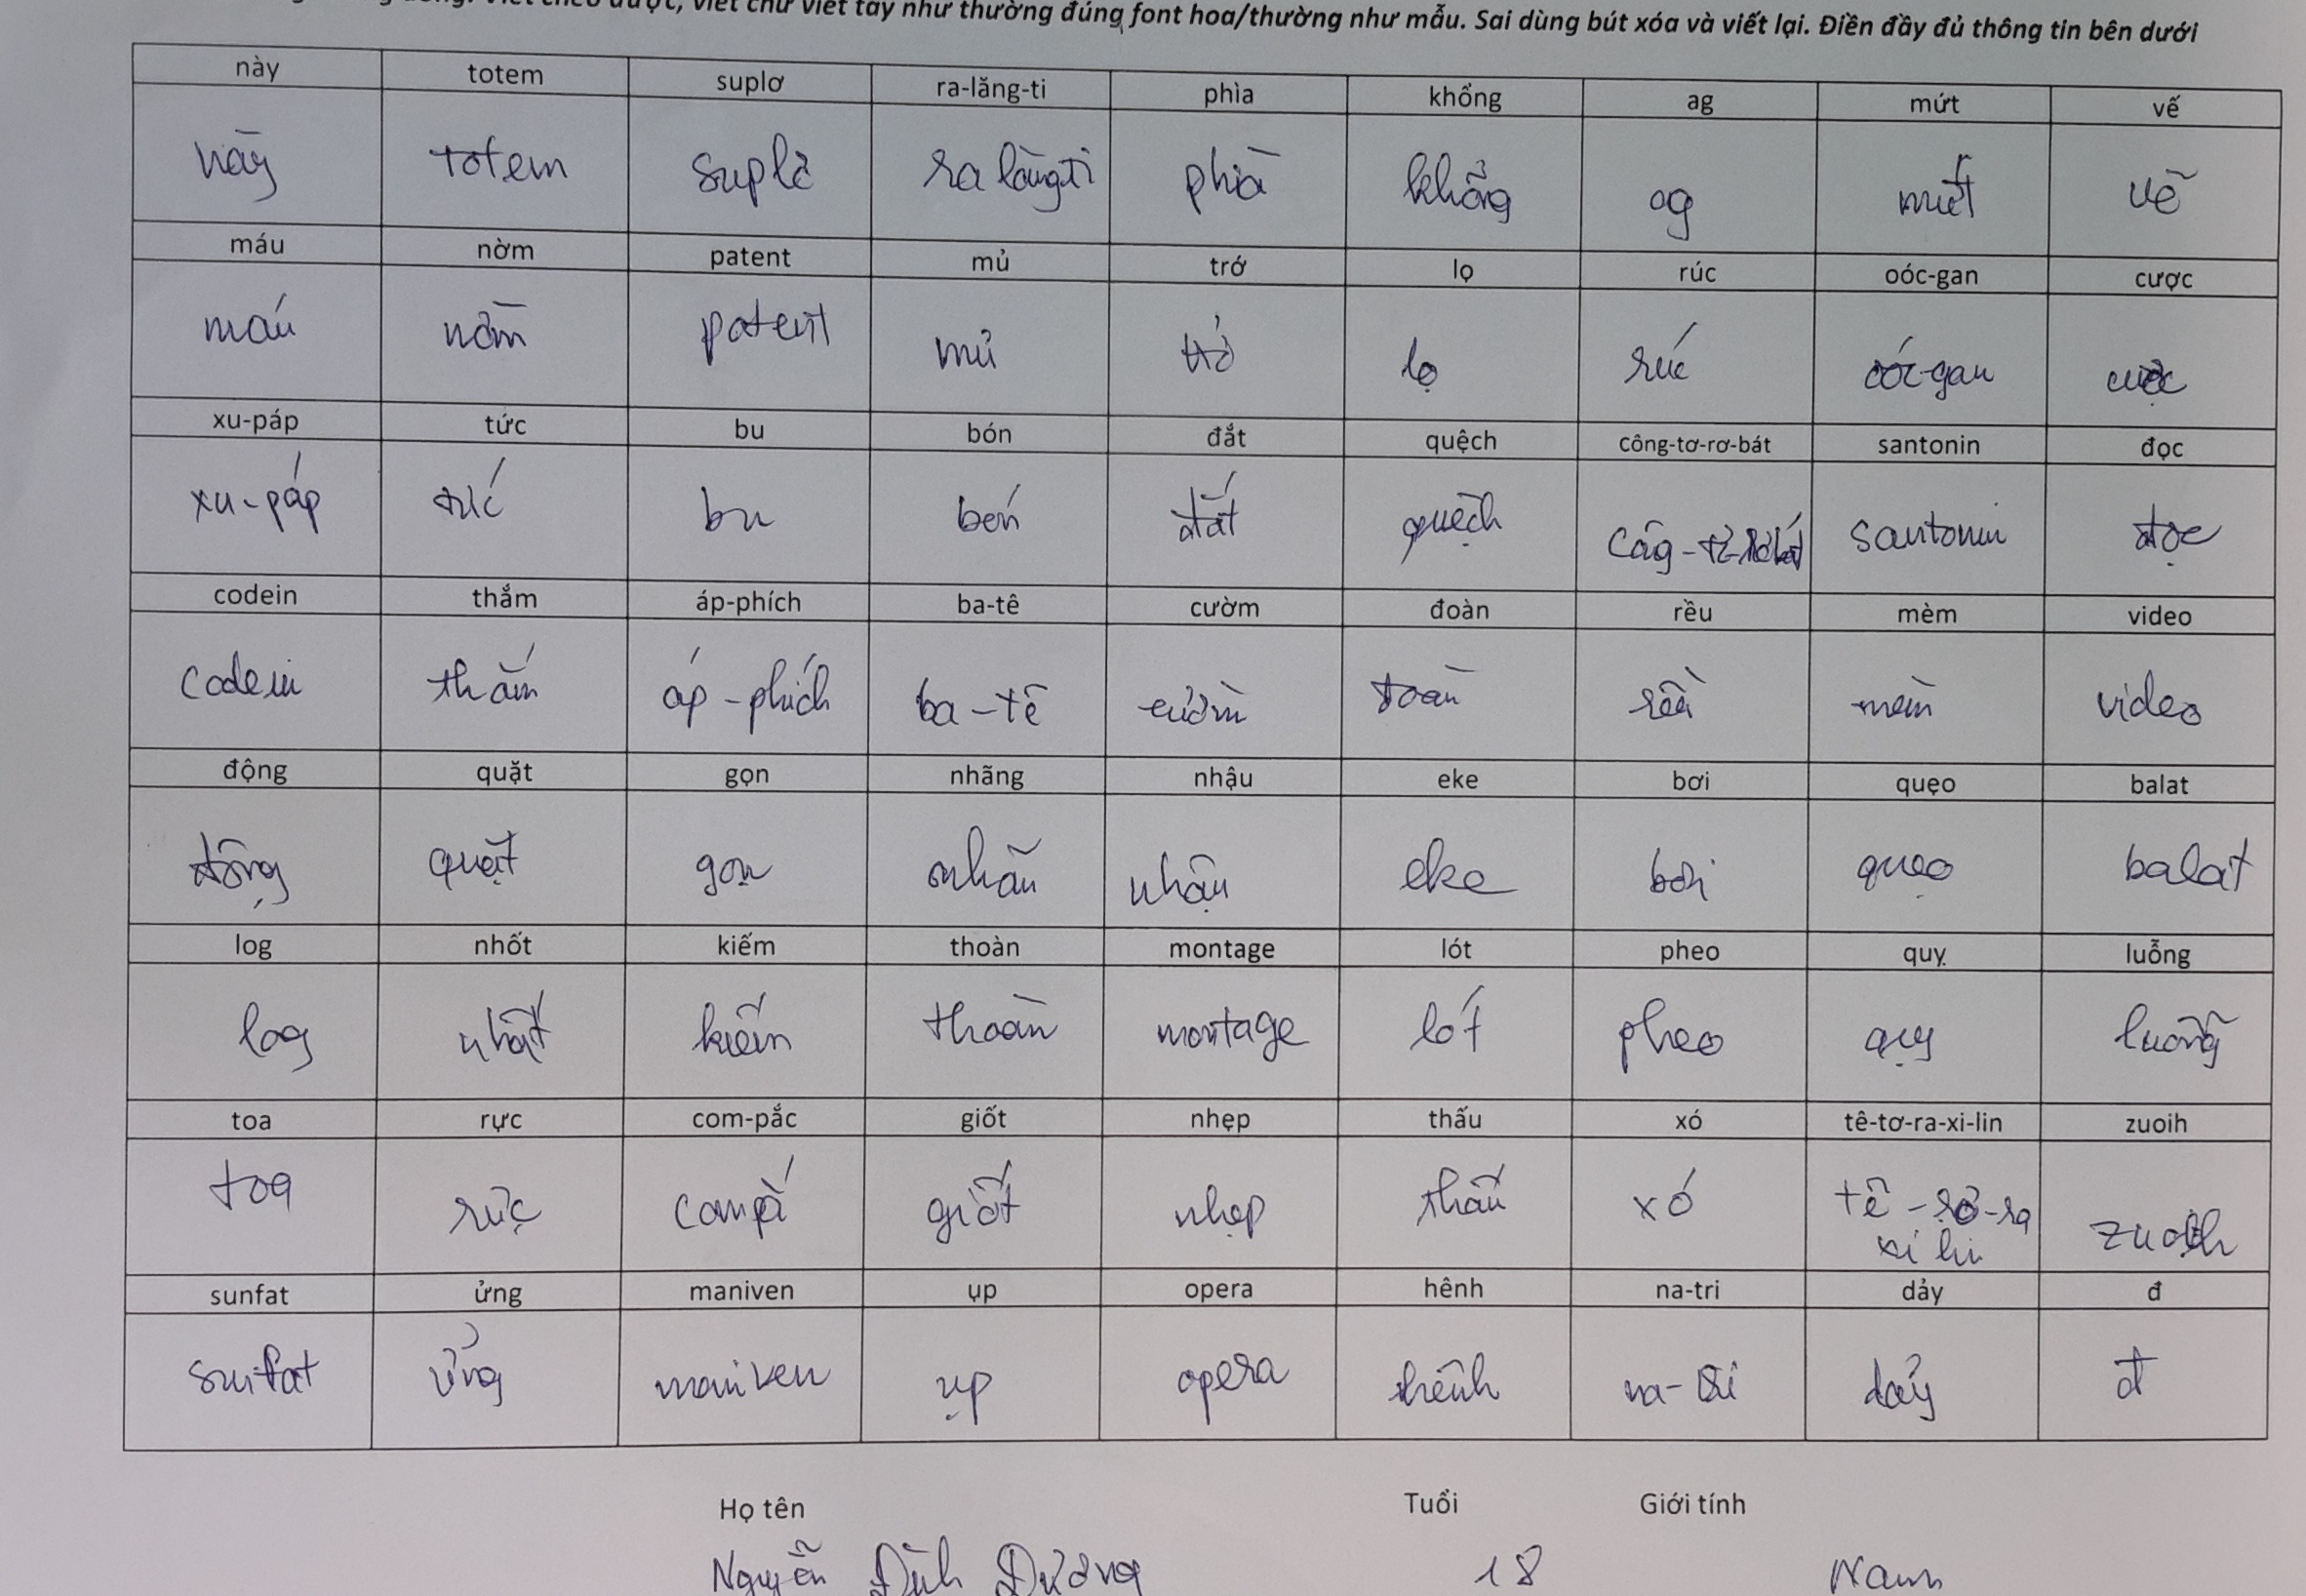 viết chữ viết tay như thường đúng font hoa/thường như mẫu. Sai dùng bút xóa và viết lại. Điền đầy đủ thông tin bên dưới
này totem suplơ ra-lăng-ti phìa khổng ag mứt vế
này totem suplơ ra lăngti phìa khổng ag mứt vẽ
máu nờm patent mủ trớ lọ rúc oóc-gan cược
máu nờm patent mủ trở lọ rúc oóc-gan cược
xu-páp tức bu bón đắt quệch công-tơ-rơ-bát santonin đọc
xu-páp tức bu bón đắt quệch santonin đọc
codein thắm áp-phích ba-tê cườm đoàn rều mèm video
codein thắm áp-phích ba-tê cườm đoàn rều mèm video
động quặt gọn nhãng nhậu eke bơi quẹo balat
động quặt gọn nhãn nhậu eke bơi quẹo balat
log nhốt kiếm thoàn montage lót pheo quỵ luỗng
log nhốt kiếm thoàn montage lót pheo quỵ luỗng
toa rực com-pắc giốt nhẹp thấu xó tê-tơ-ra-xi-lin zuoih
toa rực giốt nhẹp thấu xó tê-rơ-ra
xi lin zuoih
sunfat ửng maniven ụp opera hênh na-tri dảy đ
sunfat ửng maniven ụp opera hênh na-tri dảy đ
Họ tên Tuổi Giới tính
Nguyễn Đình Dương 18 Nam